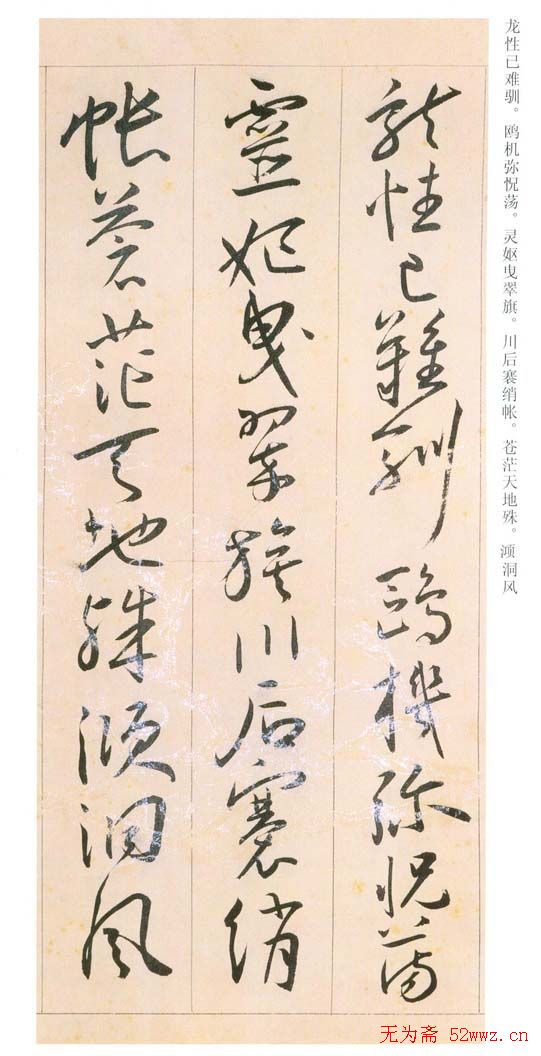 龙性已难驯。鸥机弥怳荡。灵妪曳翠旗。川后褰绡帐。苍茫天地殊。澒洞风
龍性已難馴鷗機弥怳蕩
靈妪曳翠旗川后褰绡
帐蒼茫天地殊澒洞風
无为斋 52wwz.cn